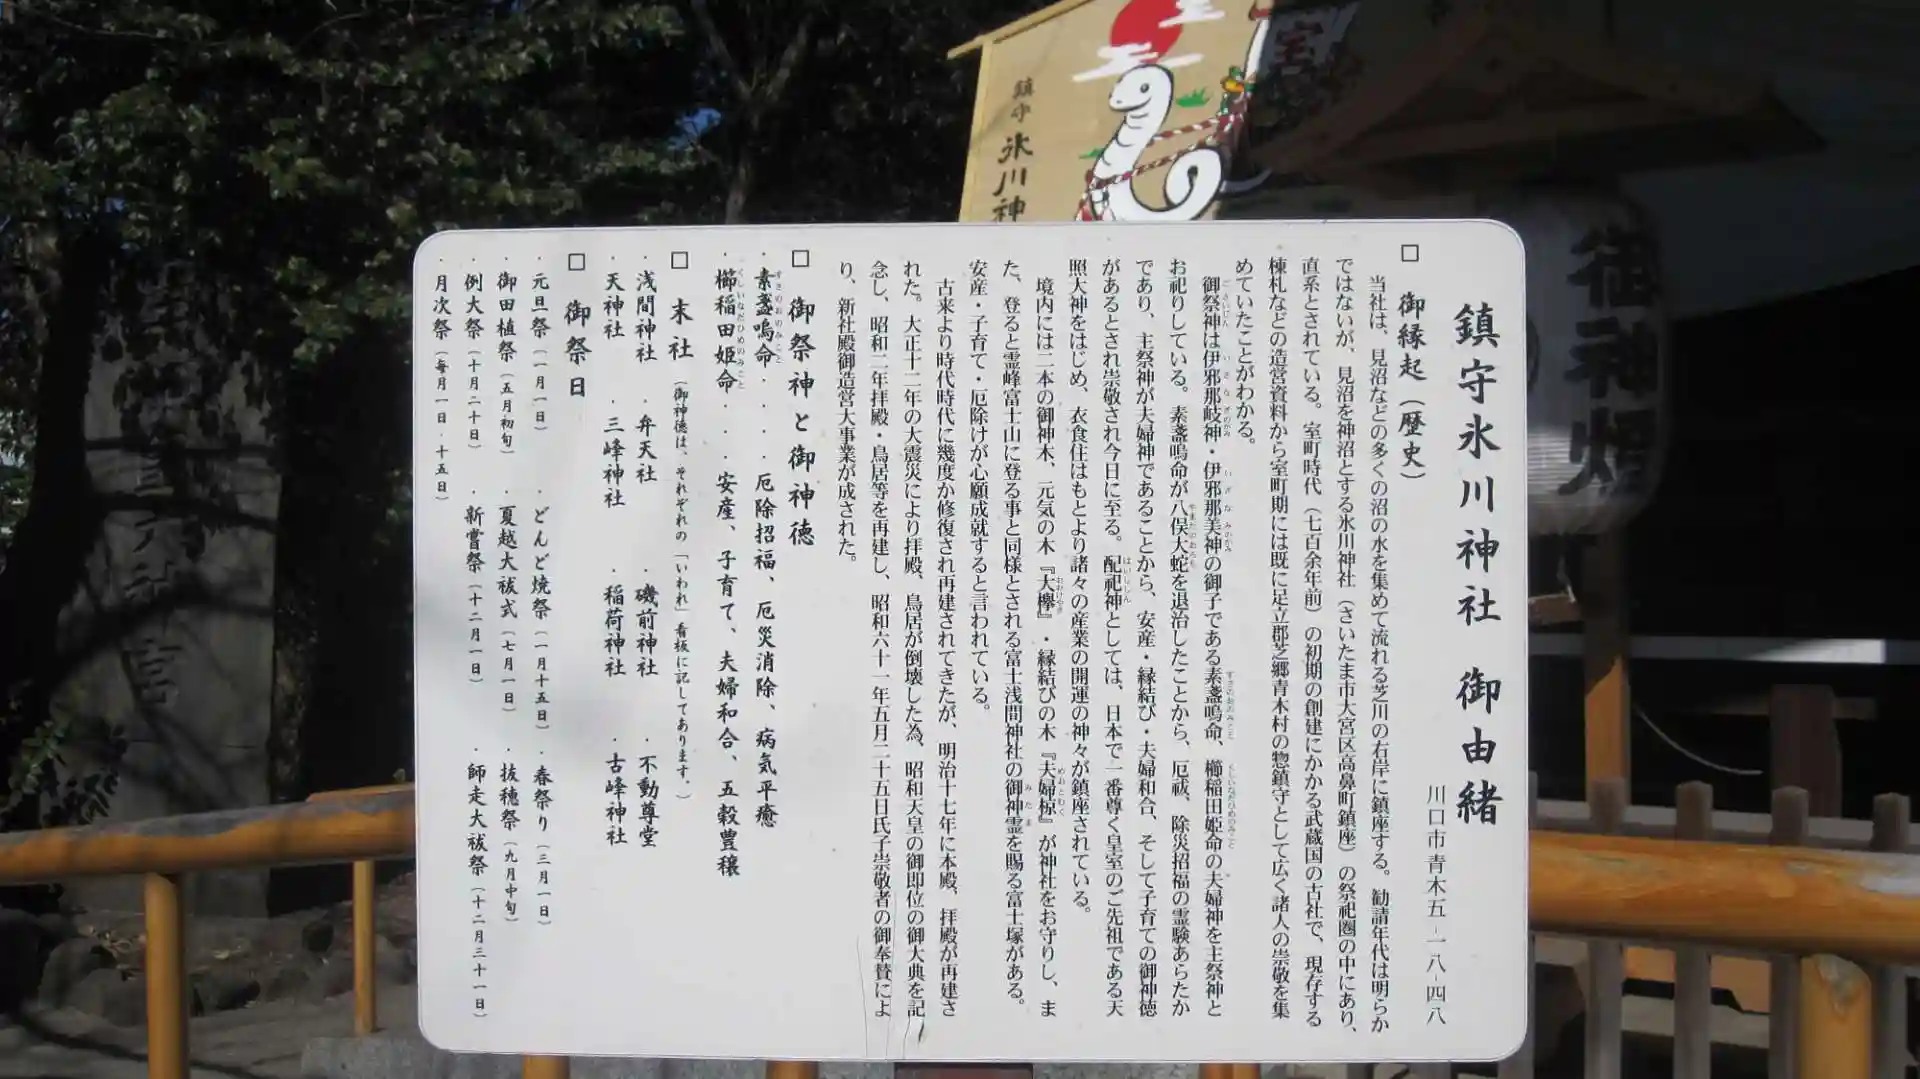 鎮守氷川神社 御由緒
川口市青木五-一八-四八
□ 御縁起（歴史）
当社は、見沼などの多くの沼の水を集めて流れる芝川の右岸に鎮座する。勧請年代は明らか
ではないが、見沼を神沼とする氷川神社（さいたま市大宮区高鼻町鎮座）の祭祀圏の中にあり、
直系とされている。室町時代（七百余年前）の初期の創建にかかる武蔵国の古社で、現存する
棟札などの造営資料から室町期には既に足立郡芝郷青木村の惣鎮守として広く諸人の崇敬を集
めていたことがわかる。
御祭神は伊邪那岐神・伊邪那美神の御子である素盞嗚命、櫛稲田姫命の夫婦神を主祭神と
お祀りしている。素盞嗚命が八俣大蛇を退治したことから、厄祓、除災招福の霊験あらたか
であり、主祭神が夫婦神であることから、安産・縁結び・夫婦和合、そして子育ての御神徳
があるとされ崇敬され今日に至る。配祀神としては、日本で一番尊く皇室のご先祖である天
照大神をはじめ、衣食住はもとより諸々の産業の開運の神々が鎮座されている。
境内には二本の御神木、元気の木『大欅』・縁結びの木『夫婦椋』が神社をお守りし、ま
た、登ると霊峰富士山に登る事と同様とされる富士浅間神社の御神霊を賜る富士塚がある。
安産・子育て・厄除けが心願成就すると言われている。
古来より時代時代に幾度か修復され再建されてきたが、明治十七年に本殿、拝殿が再建さ
れた。大正十二年の大震災により拝殿、鳥居が倒壊した為、昭和天皇の御即位の御大典を記
念し、昭和二年拝殿・鳥居等を再建し、昭和六十一年五月二十五日氏子崇敬者の御奉賛によ
り、新社殿御造営大事業が成された。
□ 御祭神と御神徳
・素盞嗚命・・・厄除招福、厄災消除、病気平癒
・櫛稲田姫命・・・安産、子育て、夫婦和合、五穀豊穣
□ 末社（御神徳は、それぞれの「いわれ」看板に記してあります。）
・浅間神社 ・弁天社 ・磯前神社 ・不動尊堂
・天神社 ・三峰神社 ・稲荷神社 ・古峰神社
□ 御祭日
・元旦祭（一月一日） ・どんど焼祭（一月十五日） ・春祭り（三月一日）
・御田植祭（五月初旬） ・夏越大祓式（七月一日） ・抜穂祭（九月中旬）
・例大祭（十月二十日） ・新嘗祭（十二月一日） ・師走大祓祭（十二月三十一日）
・月次祭（毎月一日・十五日）
鎮守 氷川神